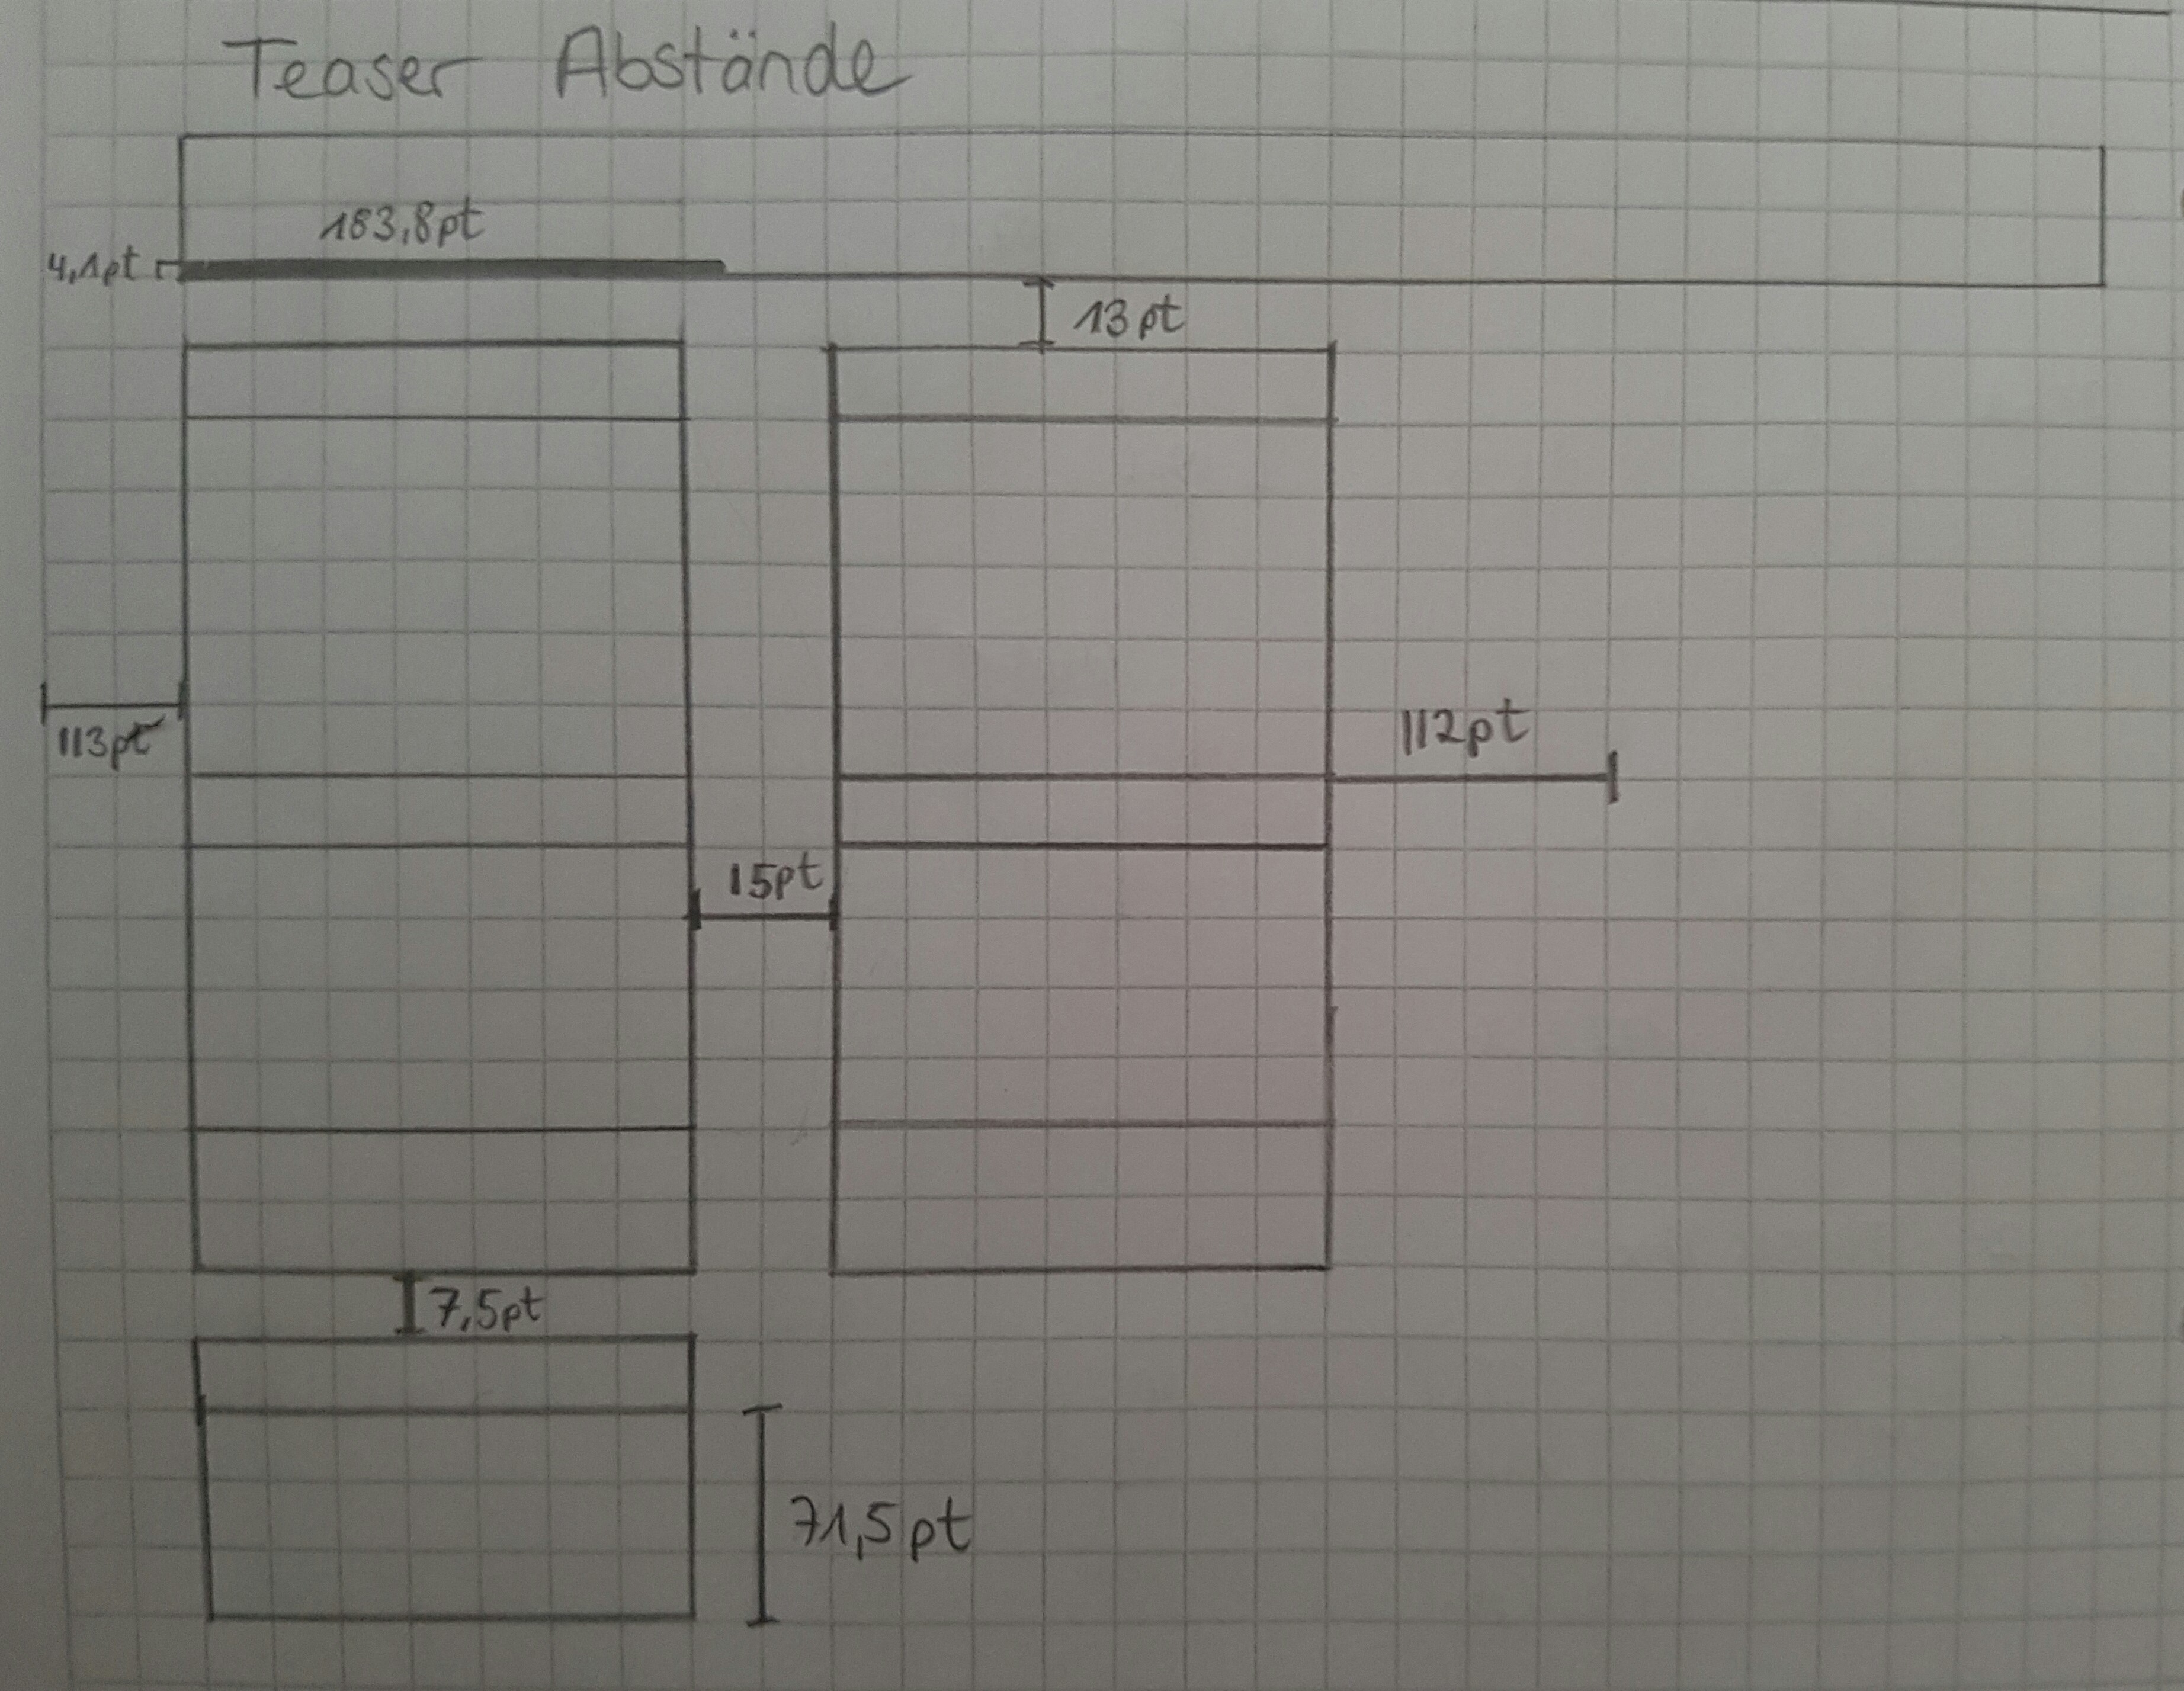 Teaser Abstände
183,8pt
4,1pt
13pt
113pt
112pt
15pt
7,5pt
71,5pt